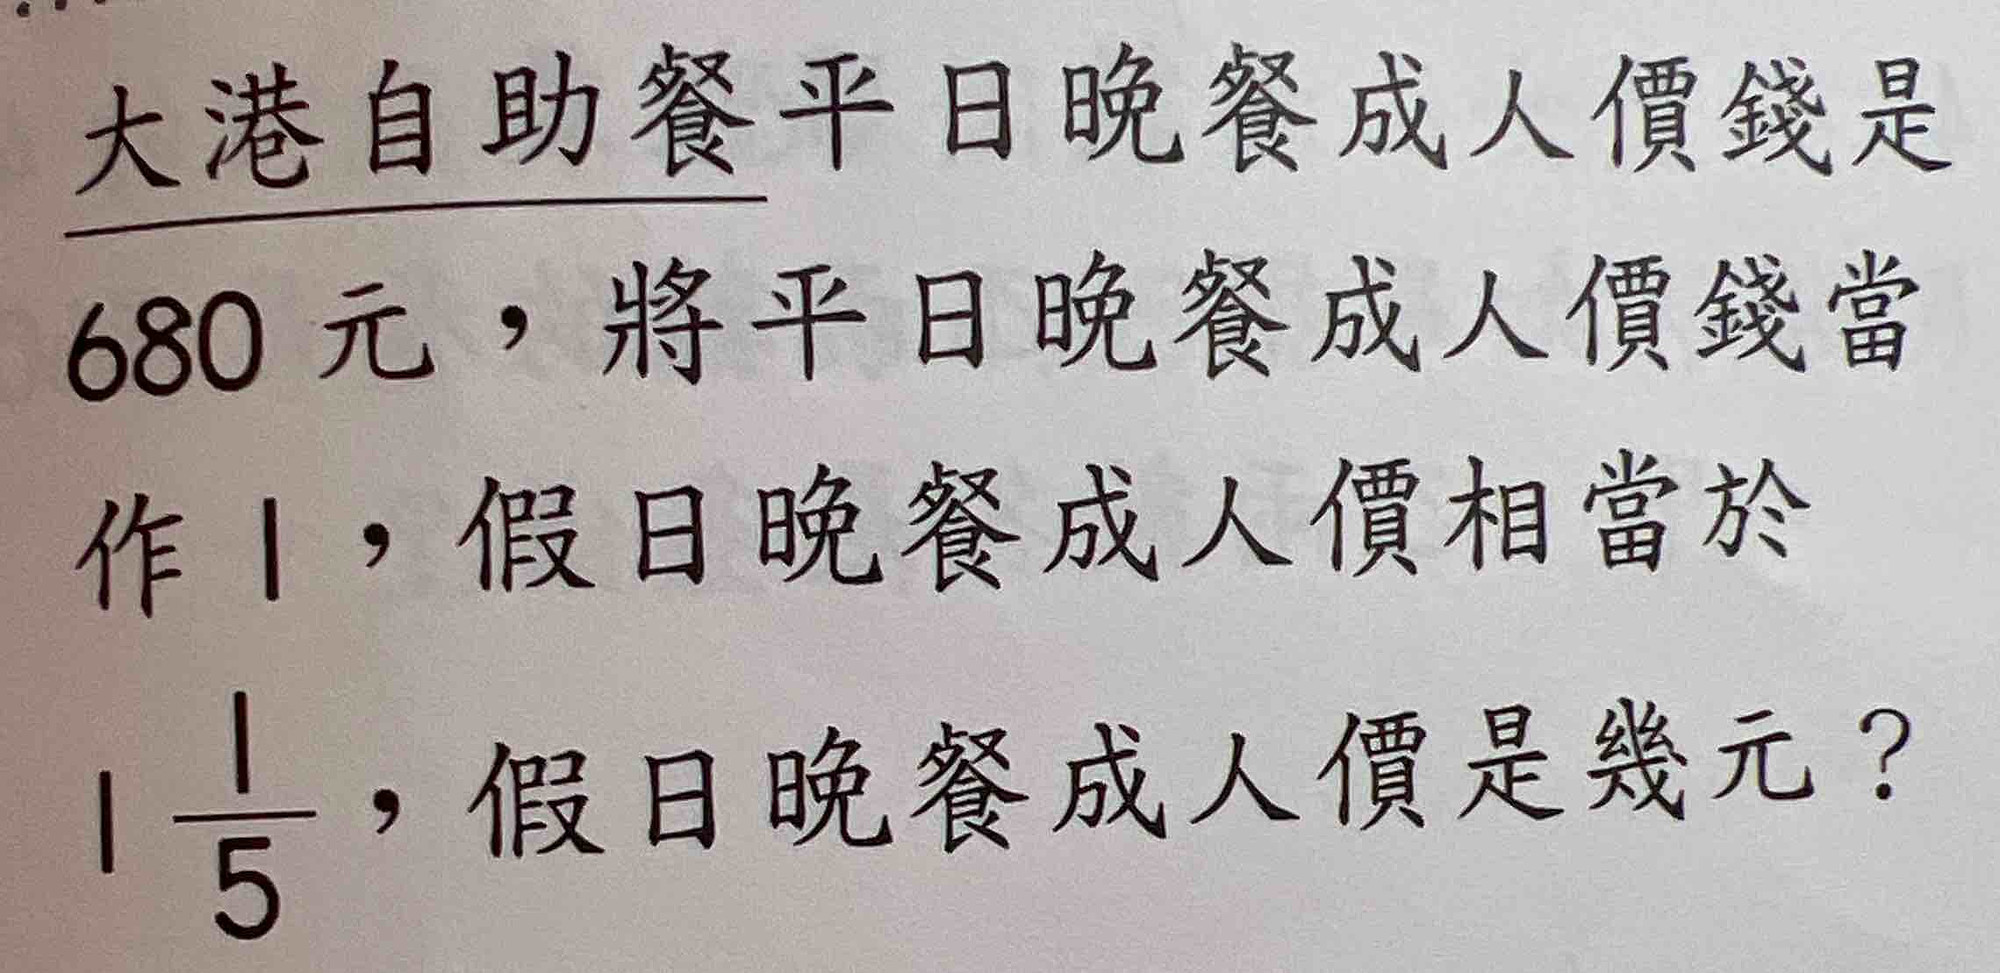 大港自助餐平日晚餐成人價錢是
680 元,將平日晚餐成人價錢當
作 1,假日晚餐成人價相當於
1 1/5,假日晚餐成人價是幾元?